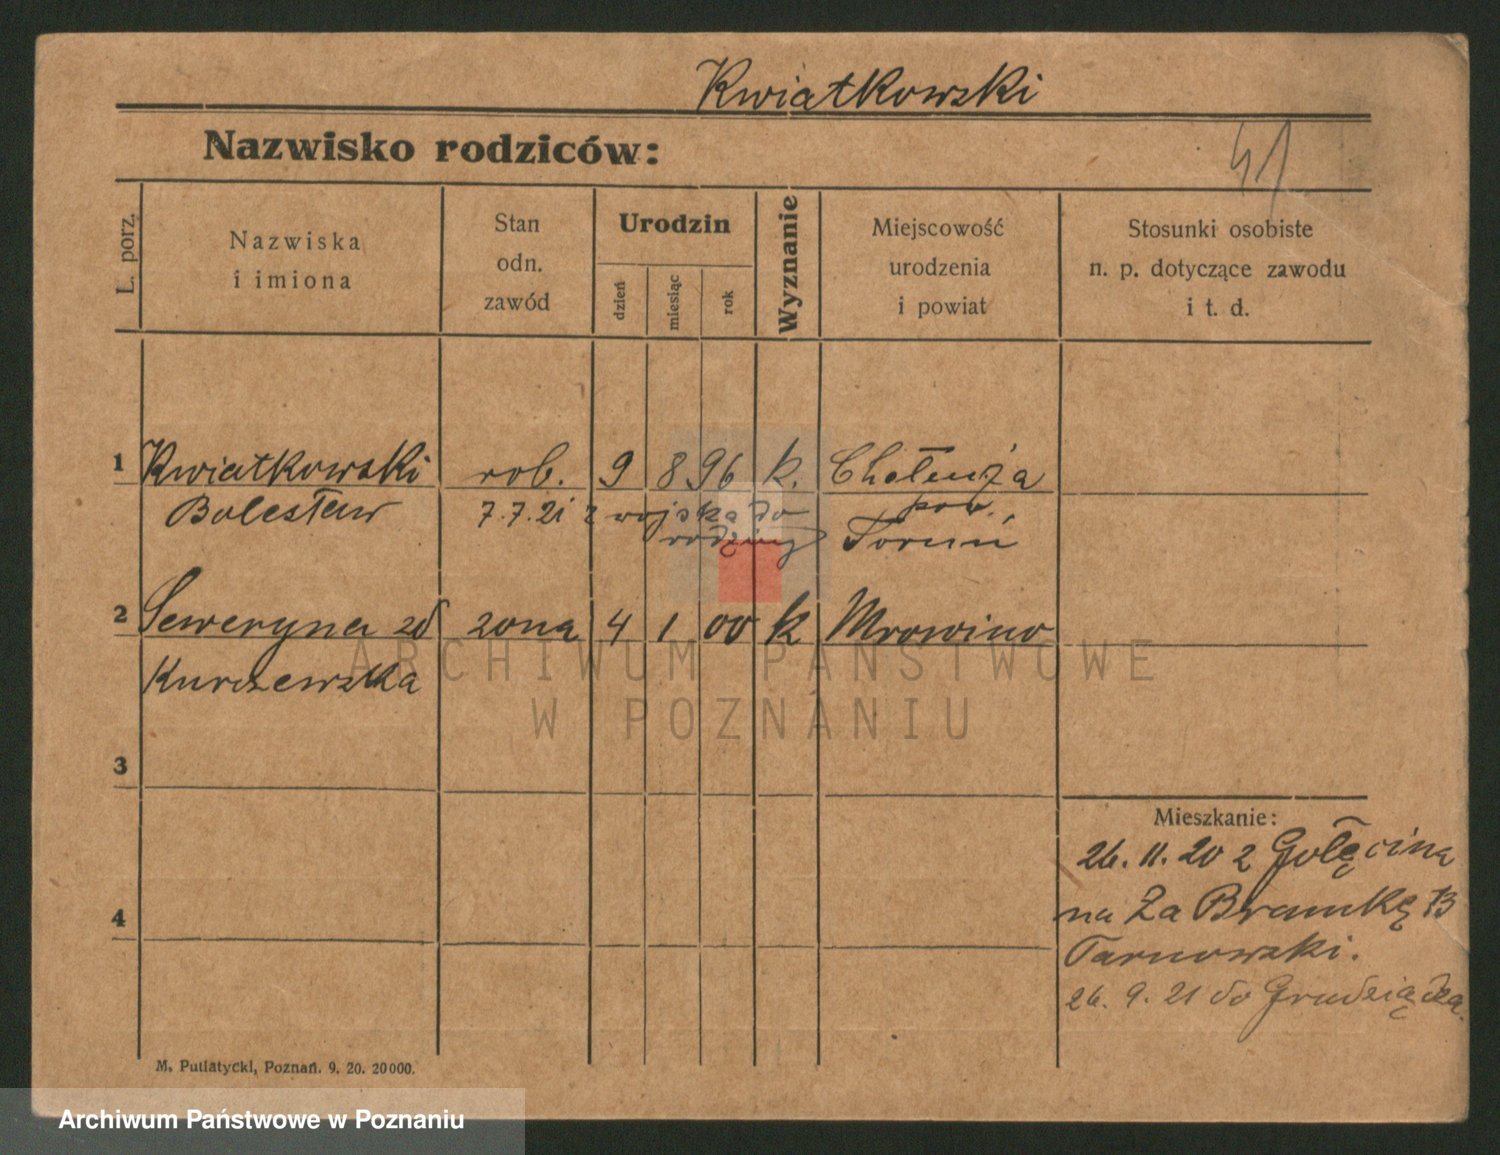 Kwiatkowski
Nazwisko rodziców:
41
L. porz.
Nazwiska
i imiona
Stan
odn.
zawód
Urodzin
dzień
miesiąc
rok
Wyznanie
Miejscowość
urodzenia
i powiat
Stosunki osobiste
n. p. dotyczące zawodu
i t. d.
1 Kwiatkowski rob. 9 8 96 k.
Bolesław 7.7.21 z wojska do pow.
rodziny Toruń
2 Seweryna zd żona 4 1 00 k Mrowino
ARCHIWUM PAŃSTWOWE
W POZNANIU
3
Mieszkanie:
26. 11. 20 z Golęcina
na Za Bramką 13
4
Tarnowski.
26. 9. 21 do Grudziądza.
M. Putiatycki, Poznań. 9. 20. 20000.
Archiwum Państwowe w Poznaniu